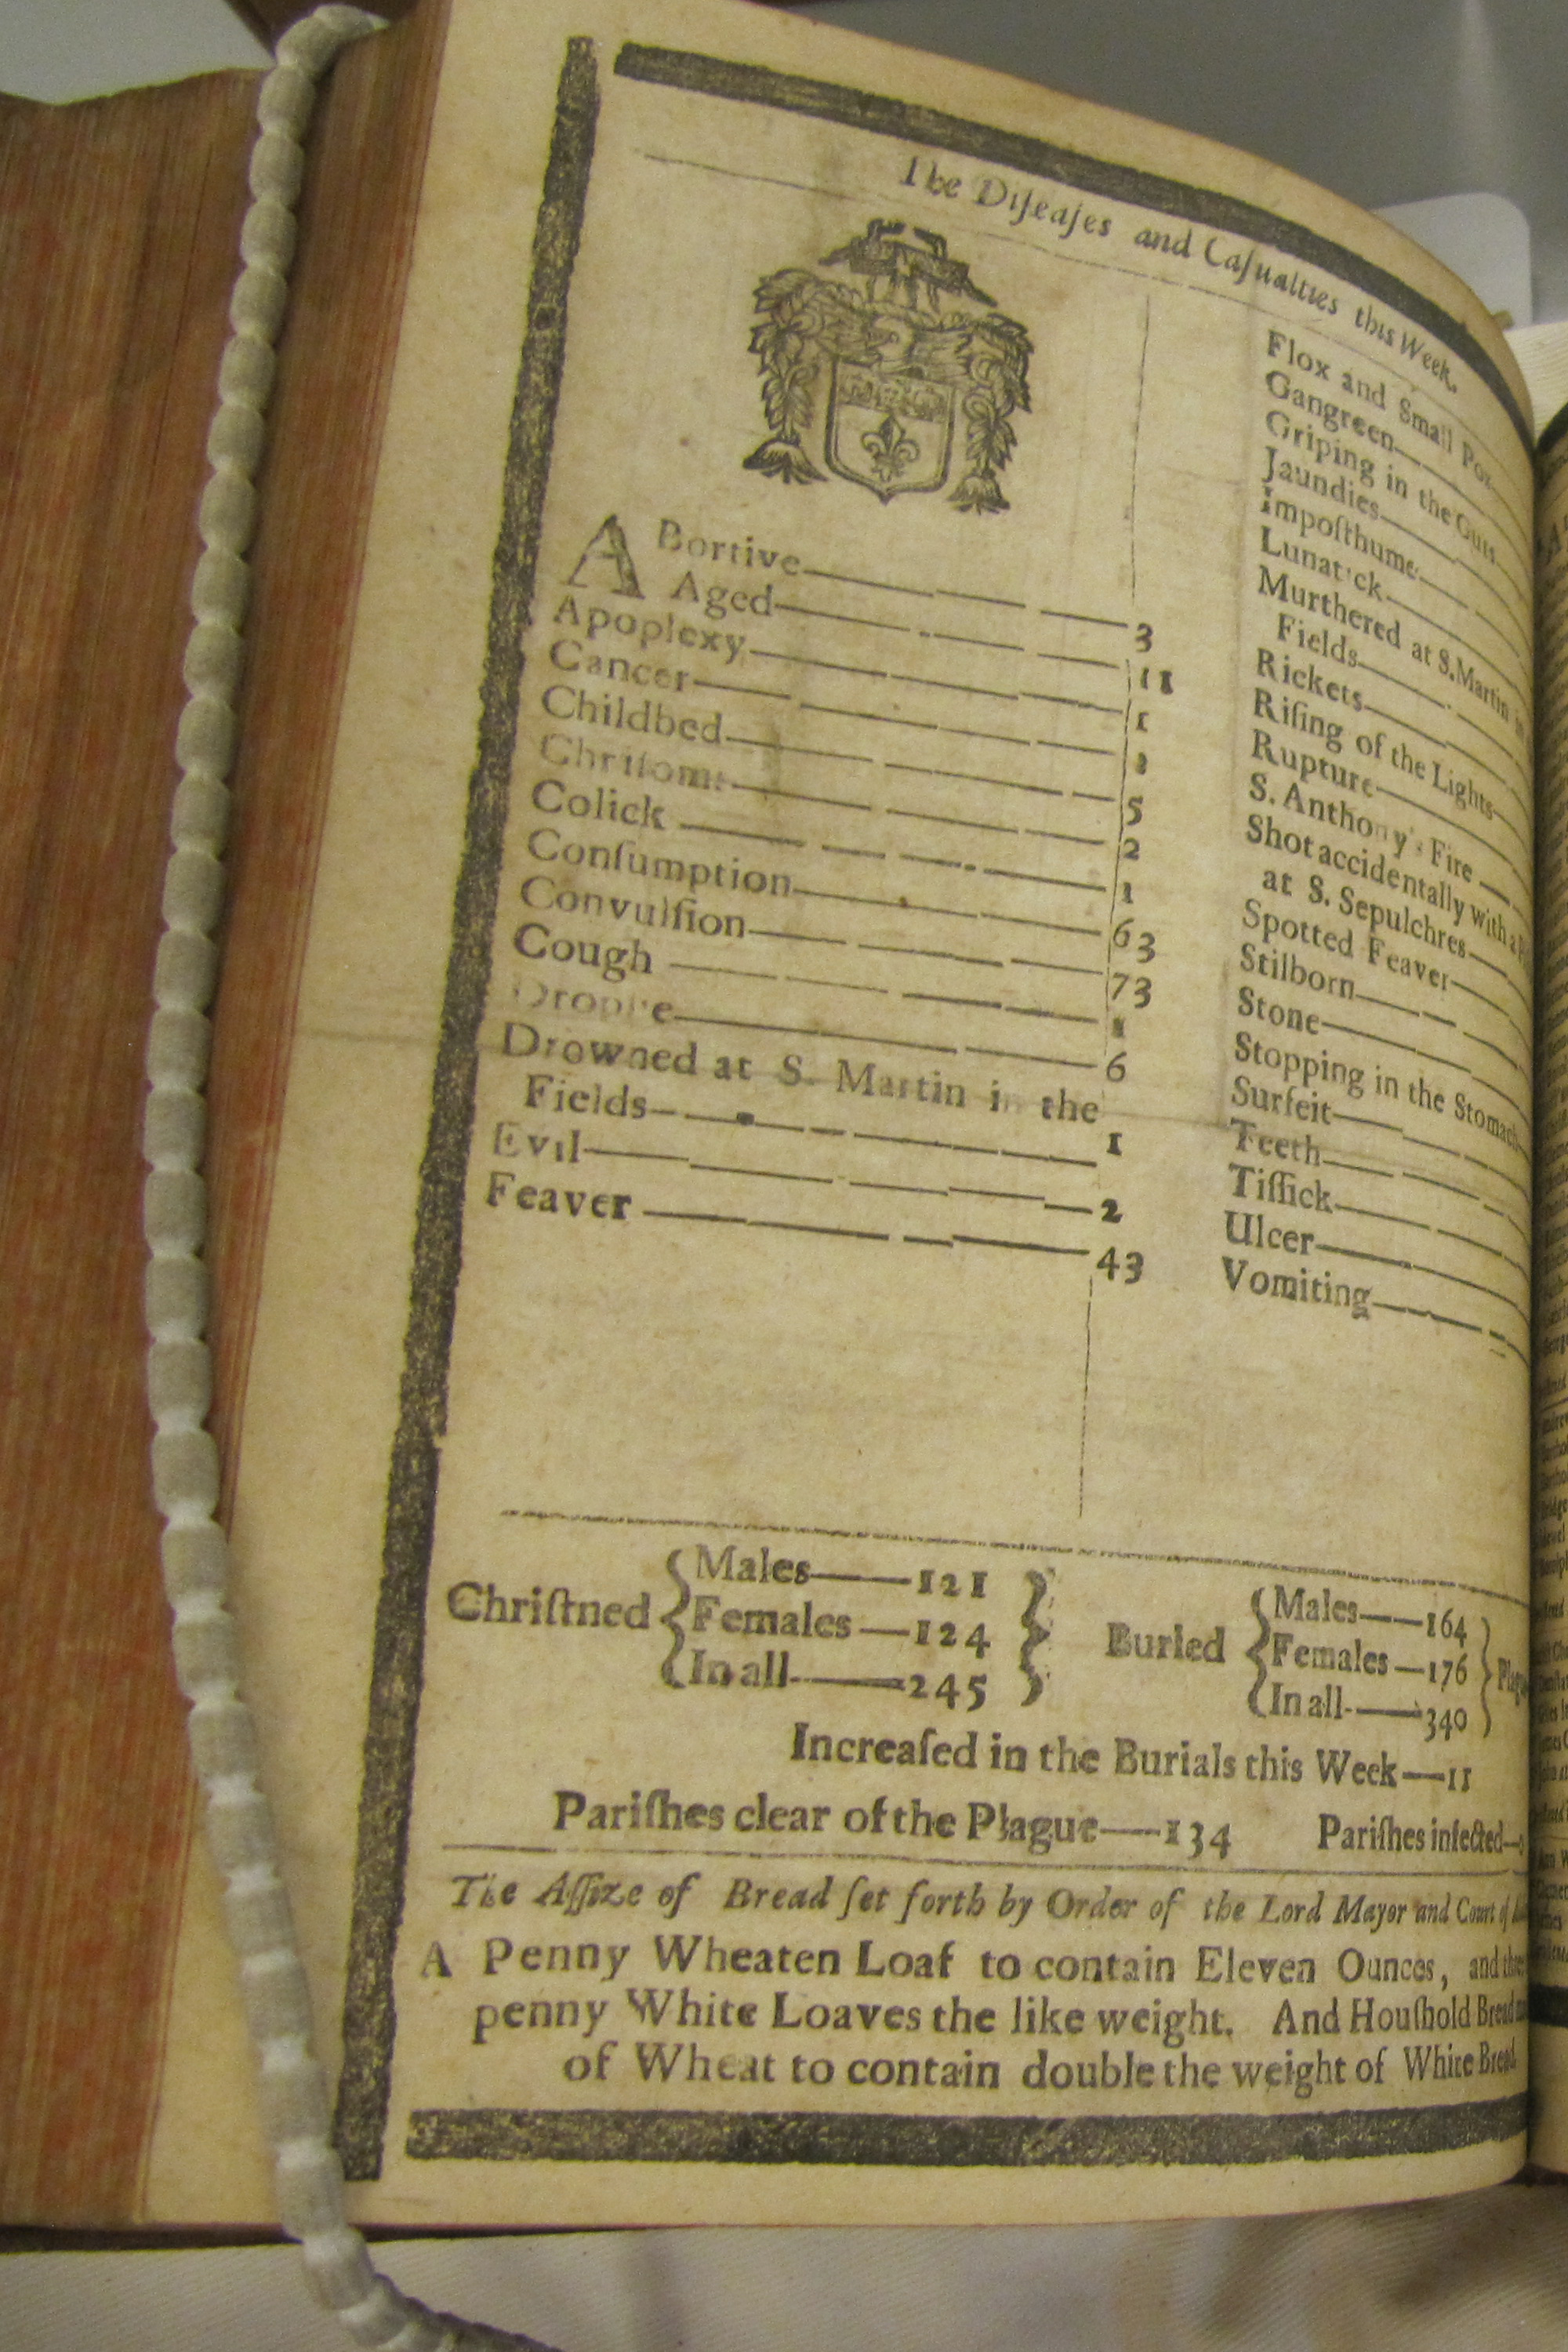 The Diſeaſes and Caſualties this Week.
ABortive 3
Aged 11
Apoplexy 1
Cancer 1
Childbed 5
Chriſoms 2
Colick 1
Conſumption 63
Convulſion 73
Cough 1
Dropſie 6
Drowned at S. Martin in the
Fields 1
Evil 2
Feaver 43
Flox and Small Pox
Gangreen
Griping in the Guts
Jaundies
Impoſthume
Lunatick
Murthered at S. Martin in
Fields
Rickets
Riſing of the Lights
Rupture
S. Anthony's Fire
Shot accidentally with a
at S. Sepulchres
Spotted Feaver
Stilborn
Stone
Stopping in the Stomach
Surfeit
Teeth
Tiſſick
Ulcer
Vomiting
Chriſtned { Males 121 Females 124 In all 245 }
Buried { Males 164 Females 176 In all 340 }
Increaſed in the Burials this Week 11
Pariſhes clear of the Plague 134 Pariſhes infected
The Aſſize of Bread ſet forth by Order of the Lord Mayor and Court of
A Penny Wheaten Loaf to contain Eleven Ounces, and
penny White Loaves the like weight. And Houſhold Bread
of Wheat to contain double the weight of White Bread